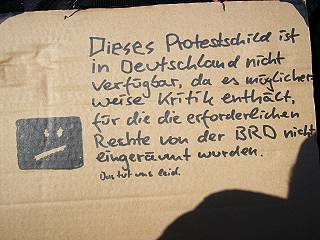 Dieses Protestschild ist
in Deutschland nicht
verfügbar, da es möglicher-
weise Kritik enthält,
für die die erforderlichen
Rechte von der BRD nicht
eingeräumt wurden.
Das tut uns leid.